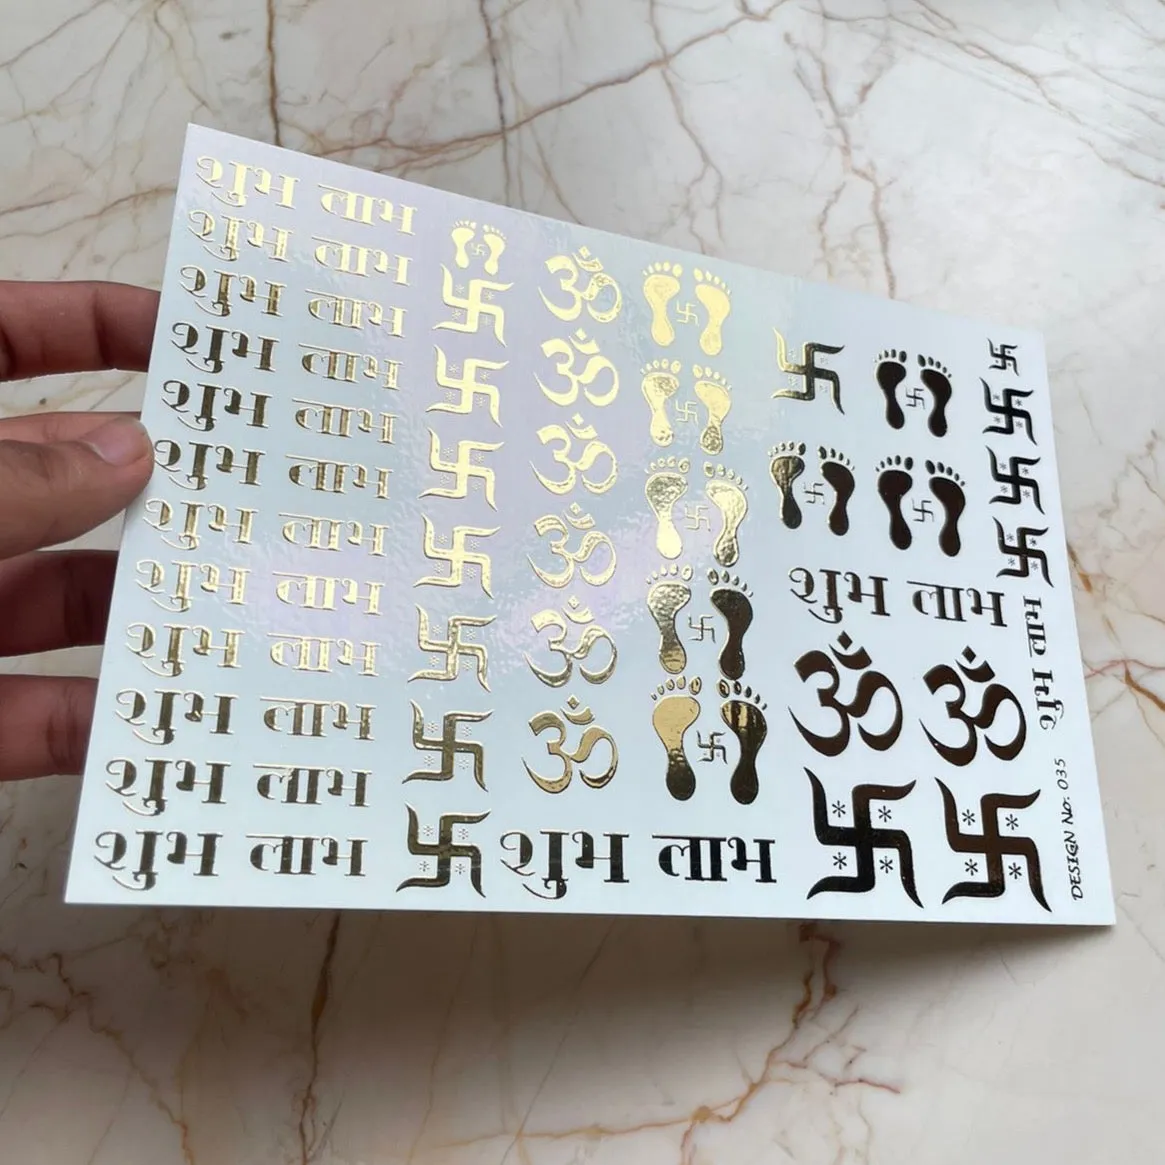 शुभ लाभ
शुभ लाभ
शुभ लाभ
शुभ लाभ
शुभ लाभ
शुभ लाभ
शुभ लाभ
शुभ लाभ
शुभ लाभ
शुभ लाभ
शुभ लाभ
शुभ लाभ
ॐ
ॐ
ॐ
ॐ
ॐ
ॐ
शुभ लाभ
शुभ लाभ
ॐ ॐ
शुभ लाभ
DESIGN No. 035